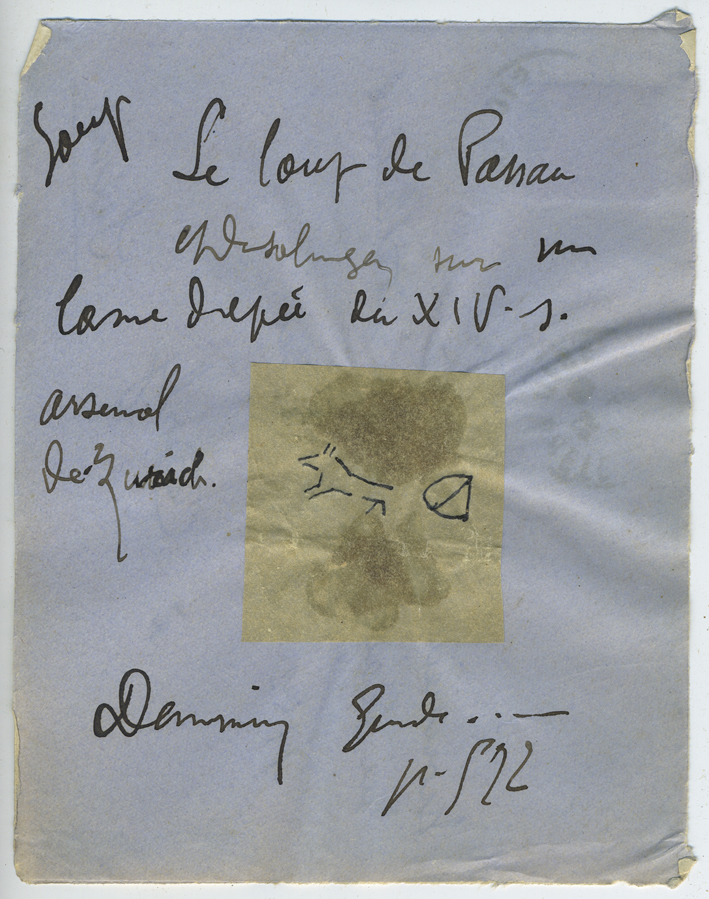 Loup
Le loup de Passau
et de solingen sur une
lame d'epée du XIV. s.
arsenal
de Zurich.
Demmin Guide...
p. 572